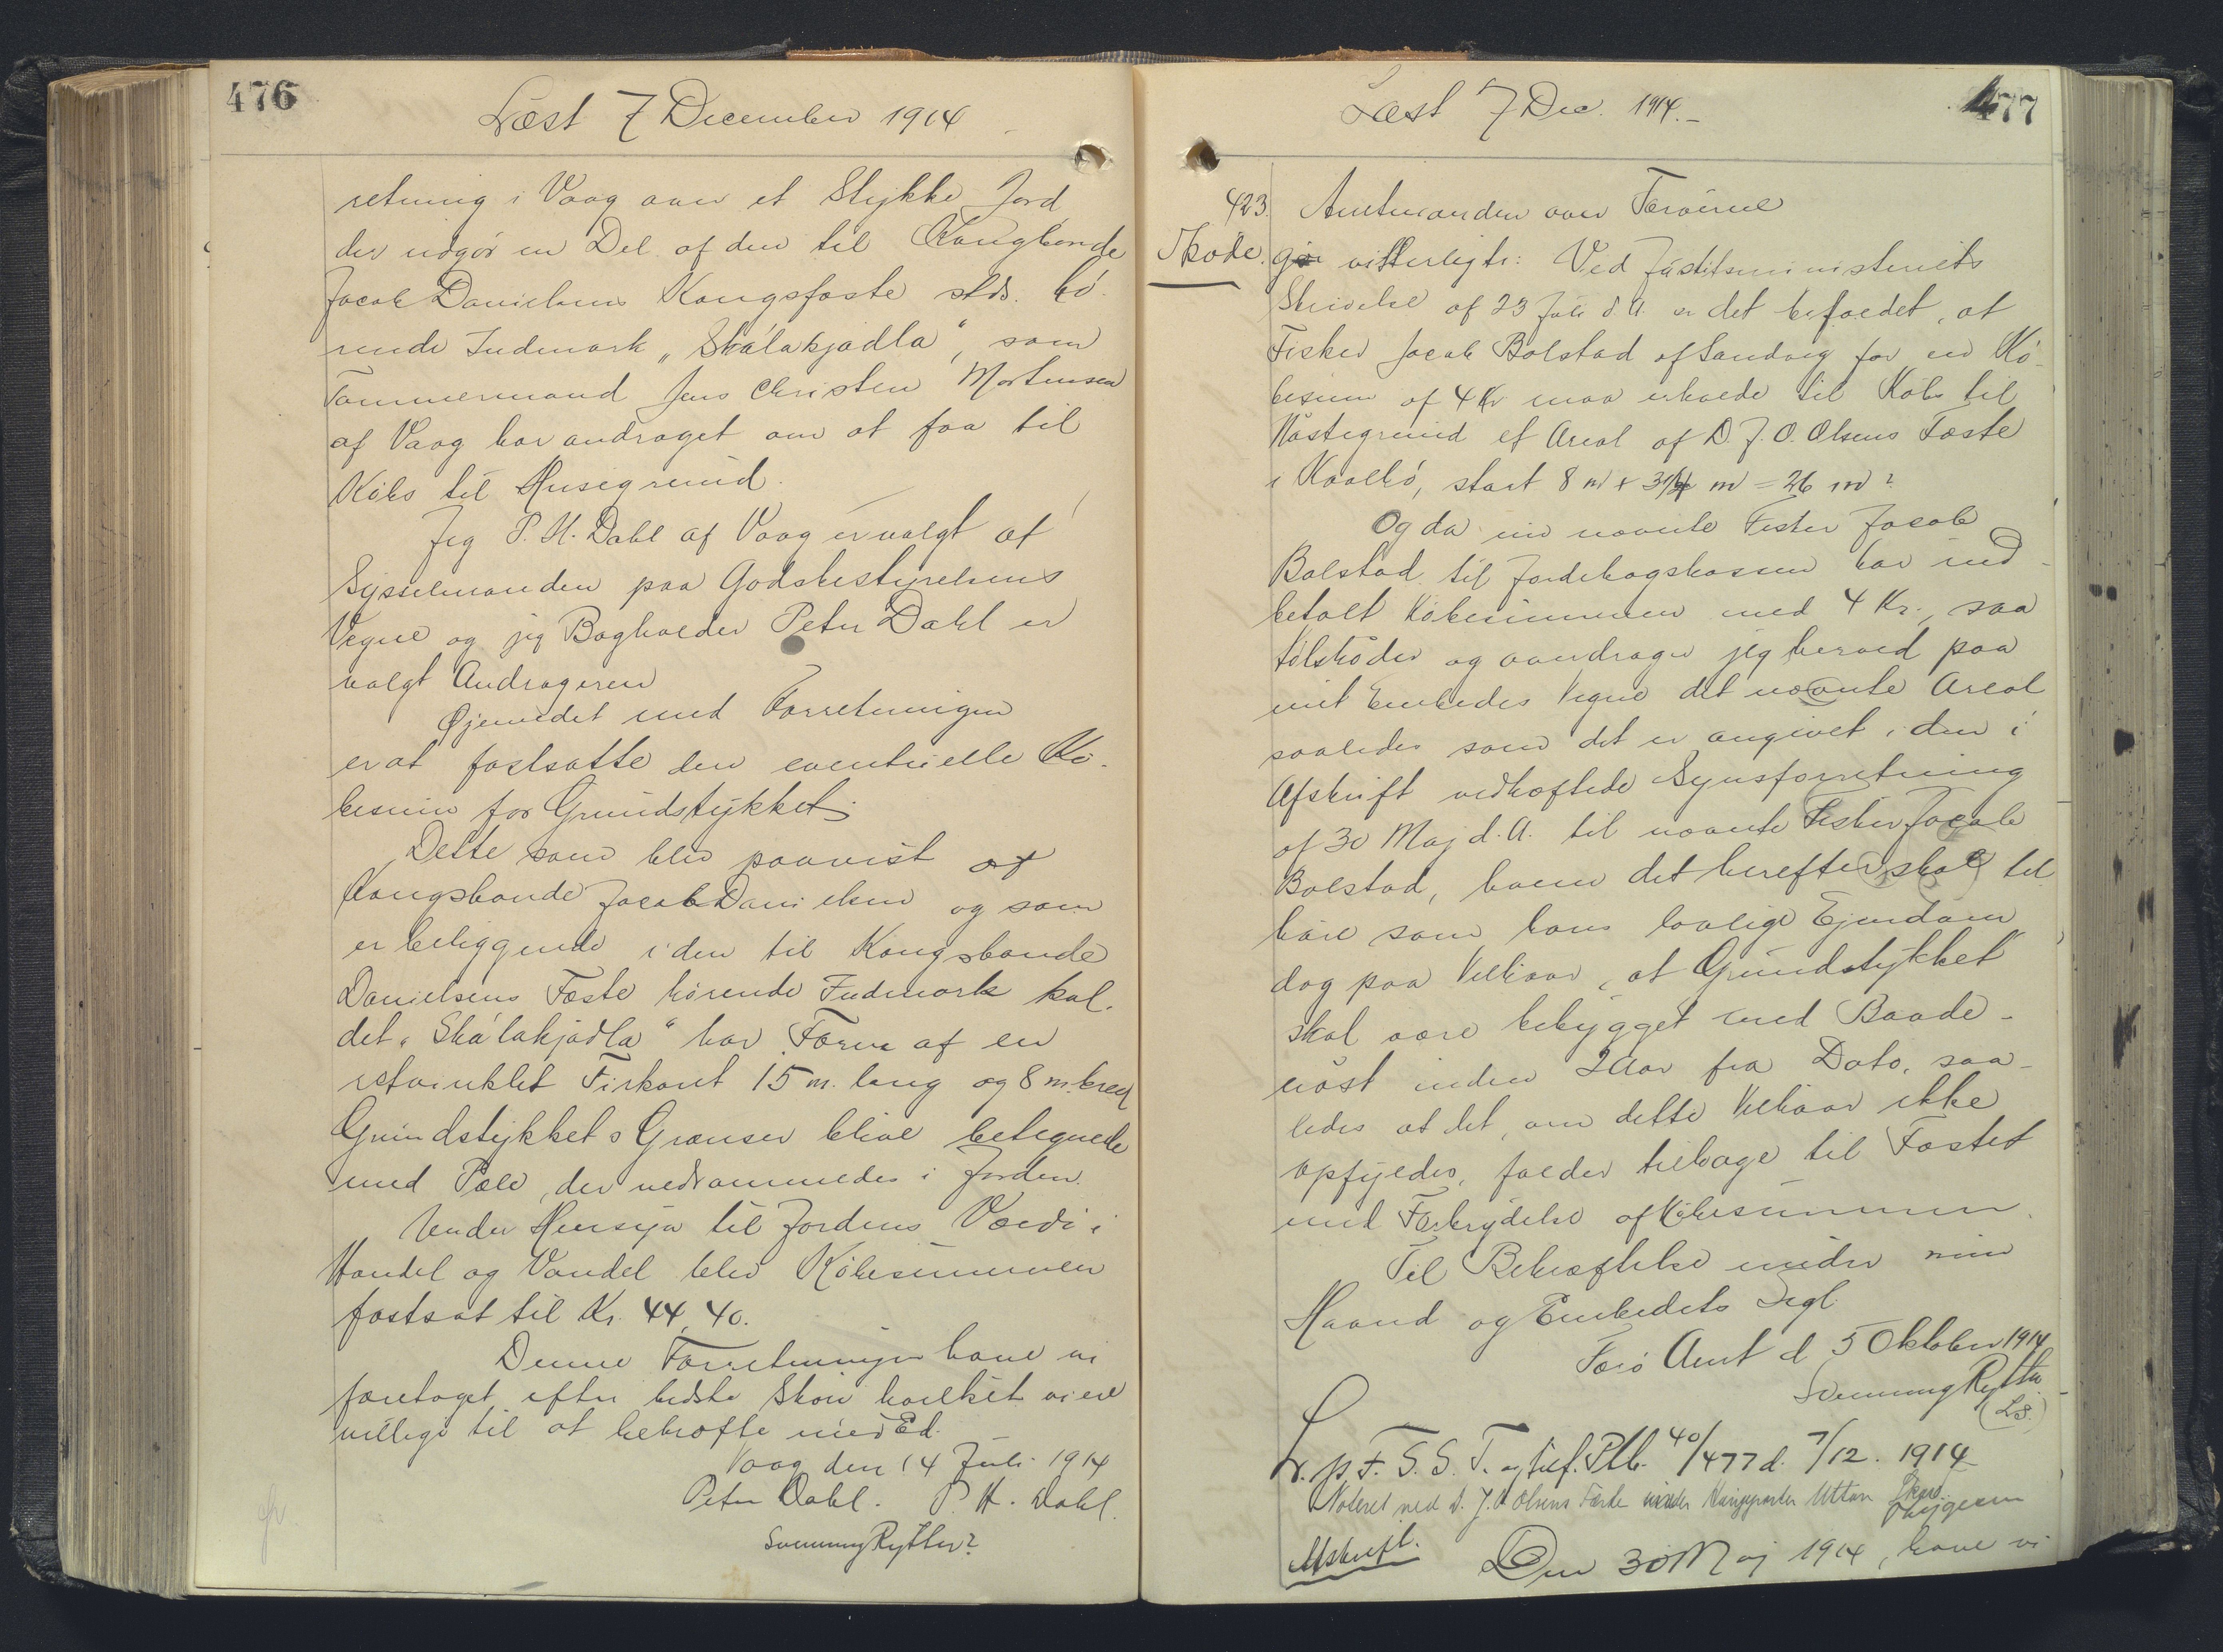 476
Læst 7 December 1914
retning i Vaag over et Stykke Jord
der udgør en Del af den til Kongsbonde
Jacob Danielsens Kongsfæste slds. hö-
rende Indmark „Skálakjadla“, som
Tømmermand Jens Christen Mortensen
af Vaag har andraget om at faa til
Købs til Husegrund.
Jeg P. H. Dahl af Vaag er valgt af
Sysselmanden paa Godsbestyrelsens
Vegne og jeg Bogholder Peter Dahl er
valgt Andrageren
Øjemedet med Forretningen
er at fastsætte den eventuelle Kö-
besum for Grundstykket.
Dette som blev paavist af
Kongsbonde Jacob Danielsen og som
er beliggende i den til Kongsbonde
Danielsens Fæste hörende Indmark kal-
det „Skálakjadla“ har Form af en
retvinklet Firkant 15 m. lang og 8 m. bred
Grundstykkets Grænser blive betegnede
med Pæle, der nedrammedes i Jorden.
Under Hensyn til Jordens Værdi i
Handel og Vandel blev Købesummen
fastsat til Kr. 44,40.
Denne Forretningen have vi
foretaget efter bedste Skøn hvilket vi ere
villige til at bekræfte med Ed.
Vaag den 14 Juli 1914
Peter Dahl. P. H. Dahl.
Svenning Rytter?
477
Læst 7 Dec. 1914.-
423. Amtmanden over Færøerne
Skøde. gör vitterligt: Ved Justitsministeriets
Skrivelse af 23 Juli d. A. er det bifaldet, at
Fisker Jacob Bolstad af Sandvig for en Kö-
besum af 4 Kr maa erholde til Købs til
Nöstegrund et Areal af D. J. O. Olsens Fæste
i Kvalbö, stort 8 m x 3 1/4 m = 26 m²
Og da nu nævnte Fisker Jacob
Bolstad til Jordebogskassen har ind-
betalt Købesummen med 4 Kr., saa
tilskøder og overdrager jeg herved paa
mit Embedes Vegne det nævnte Areal
saaledes som det er angivet i den i
Afskrift vedhæftede Synsforretning
af 30 Maj d. A. til nævnte Fisker Jacob
Bolstad, hvem det herefter skal til-
höre som hans lovlige Ejendom
dog paa Vilkaar, at Grundstykket
skal være bebygget med Baade-
nöst inden 2 Aar fra Dato, saa-
ledes at det, om dette Vilkaar ikke
opfyldes, falder tilbage til Fæstet
med Forbrydelse af Købesummen.
Til Bekræftelse under min
Haand og Embedets Segl.
Færö Amt d. 5 Oktober 1914
Svenning Rytter
(L.S.)
L. p. F. S. S. T. og inf. Ptb. 40/477 d. 7/12. 1914
Noteret ved D. J. O. Olsens Fæste under
Afskrift. Den 30 Maj 1914, have vi